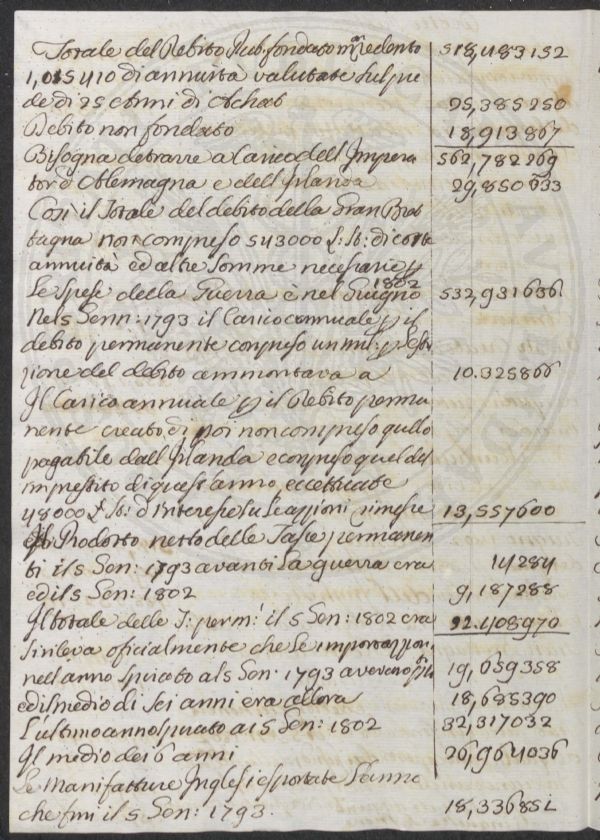 Totale del Debito Pub. fondato credento 518,483152
1,015410 di annuità valutate sul pie
de di 25 Anni di Achat 25,385250
Debito non fondato 18,913867
Bisogna detrarre a Carico dell Impera 562,782269
tor d'Alemagna e dell Irlanda 29,850633
Così il Totale del debito della Gran Bret
tagna non compreso 543000 L: St: di corte
annuità ed altre somme necessarie p
Le Spese della Guerra è nel Giugno 1802 532,931636
Nel 5 Genn: 1793 il Carico annuale p il
debito permanente compreso un mil: p
zione del debito ammontava a 10.325866
Il Carico annuale p il Debito perma
nente creato di poi non compreso quello
pagabile dall Irlanda e compreso quel del
imprestito di quest'anno eccettuate
48000 L St: d'interesse su le azzioni rimesse 13,557600
Il Prodotto netto delle Tasse permanen
ti il 5 Gen: 1793 avanti la guerra era 14284
ed il 5 Gen: 1802 9,187288
Il totale delle T: perm: il 5 Gen: 1802 era 22.408970
Si rileva oficialmente che le importazzion
nell anno spirato al 5 Gen: 1793 avevano 19,659358
ed il medio di sei anni era allora 18,685390
L'ultimo anno spirato ai 5 Gen: 1802 32,317032
Il medio dei 6 anni 26,964036
Le Manifatture Inglesi esportate l'anno
che finì il 5 Gen: 1793. 18,336851